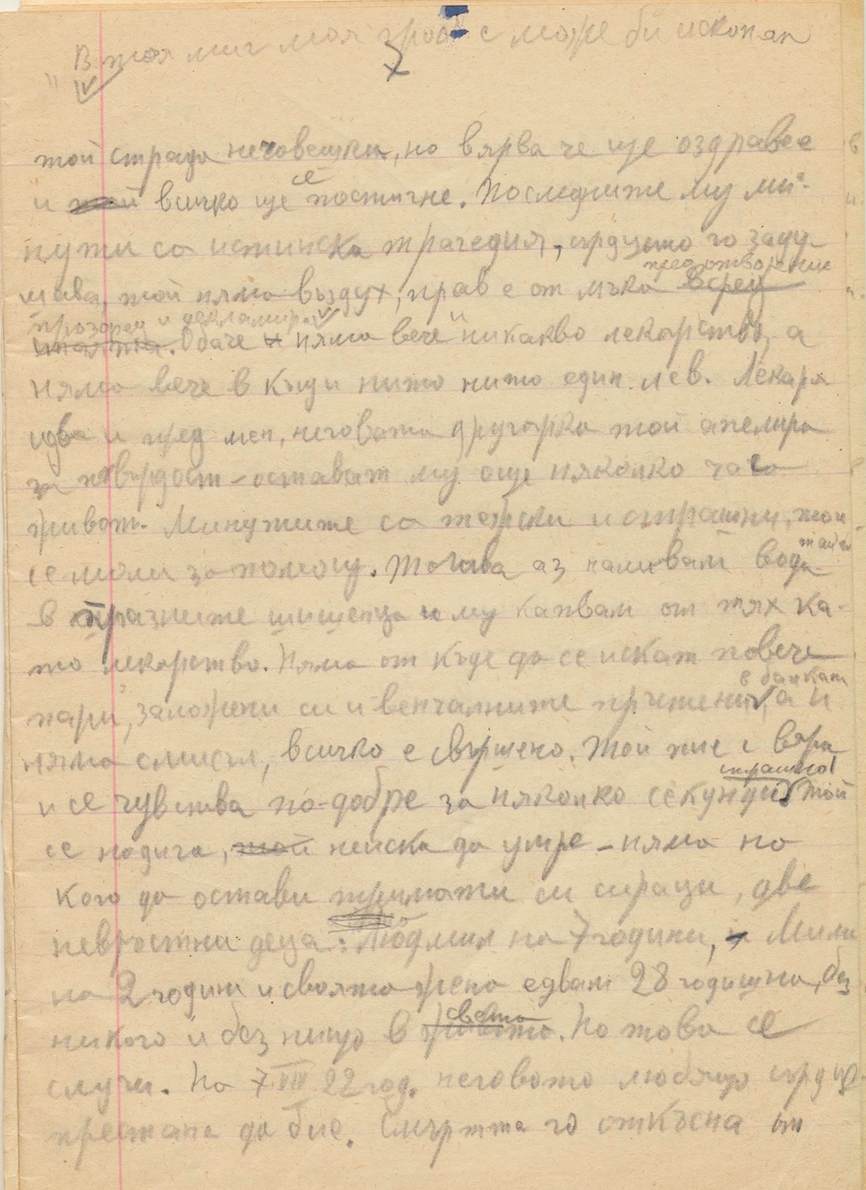 В тоя миг моя гроб е може би ископан
7
той страда нечовешки, но вярва че ще оздравее
и той всичко ще се постигне. Последните му ми-
нути са истинска трагедия, сърцето го заду-
шава, той няма въздух, прав е от мъка пред отворения
прозорец и декламира. Обаче няма вече никакво лекарство, а
няма вече в къщи нито нито един лев. Лекаря
идва и пред мен, неговата другарка той апелира
за твърдост – остават му още няколко часа
живот. Минутите са тежки и страшни, той
се моли за помощ. Тогава аз наливам вода тайно
в празните шишенца и му капвам от тях ка-
то лекарство. Няма от къде да се искат повече
пари, заложени са и венчалните пръстени в банката, а и
няма смисъл, всичко е свършено. Той пие с вяра
и се чувства по-добре за няколко секунди страшно! Той
се надига, той неиска да умре – няма на
кого да остави тримата си сираци, две
невръстни деца: Людмил на 7 години, и Мила
на 2 години и своята жена едвам 28 годишна, без
никого и без нищо в живота света. Но това се
случи. На 7 VIII 22 год. неговото любящо сърце
престана да бие. Смъртта го откъсна от